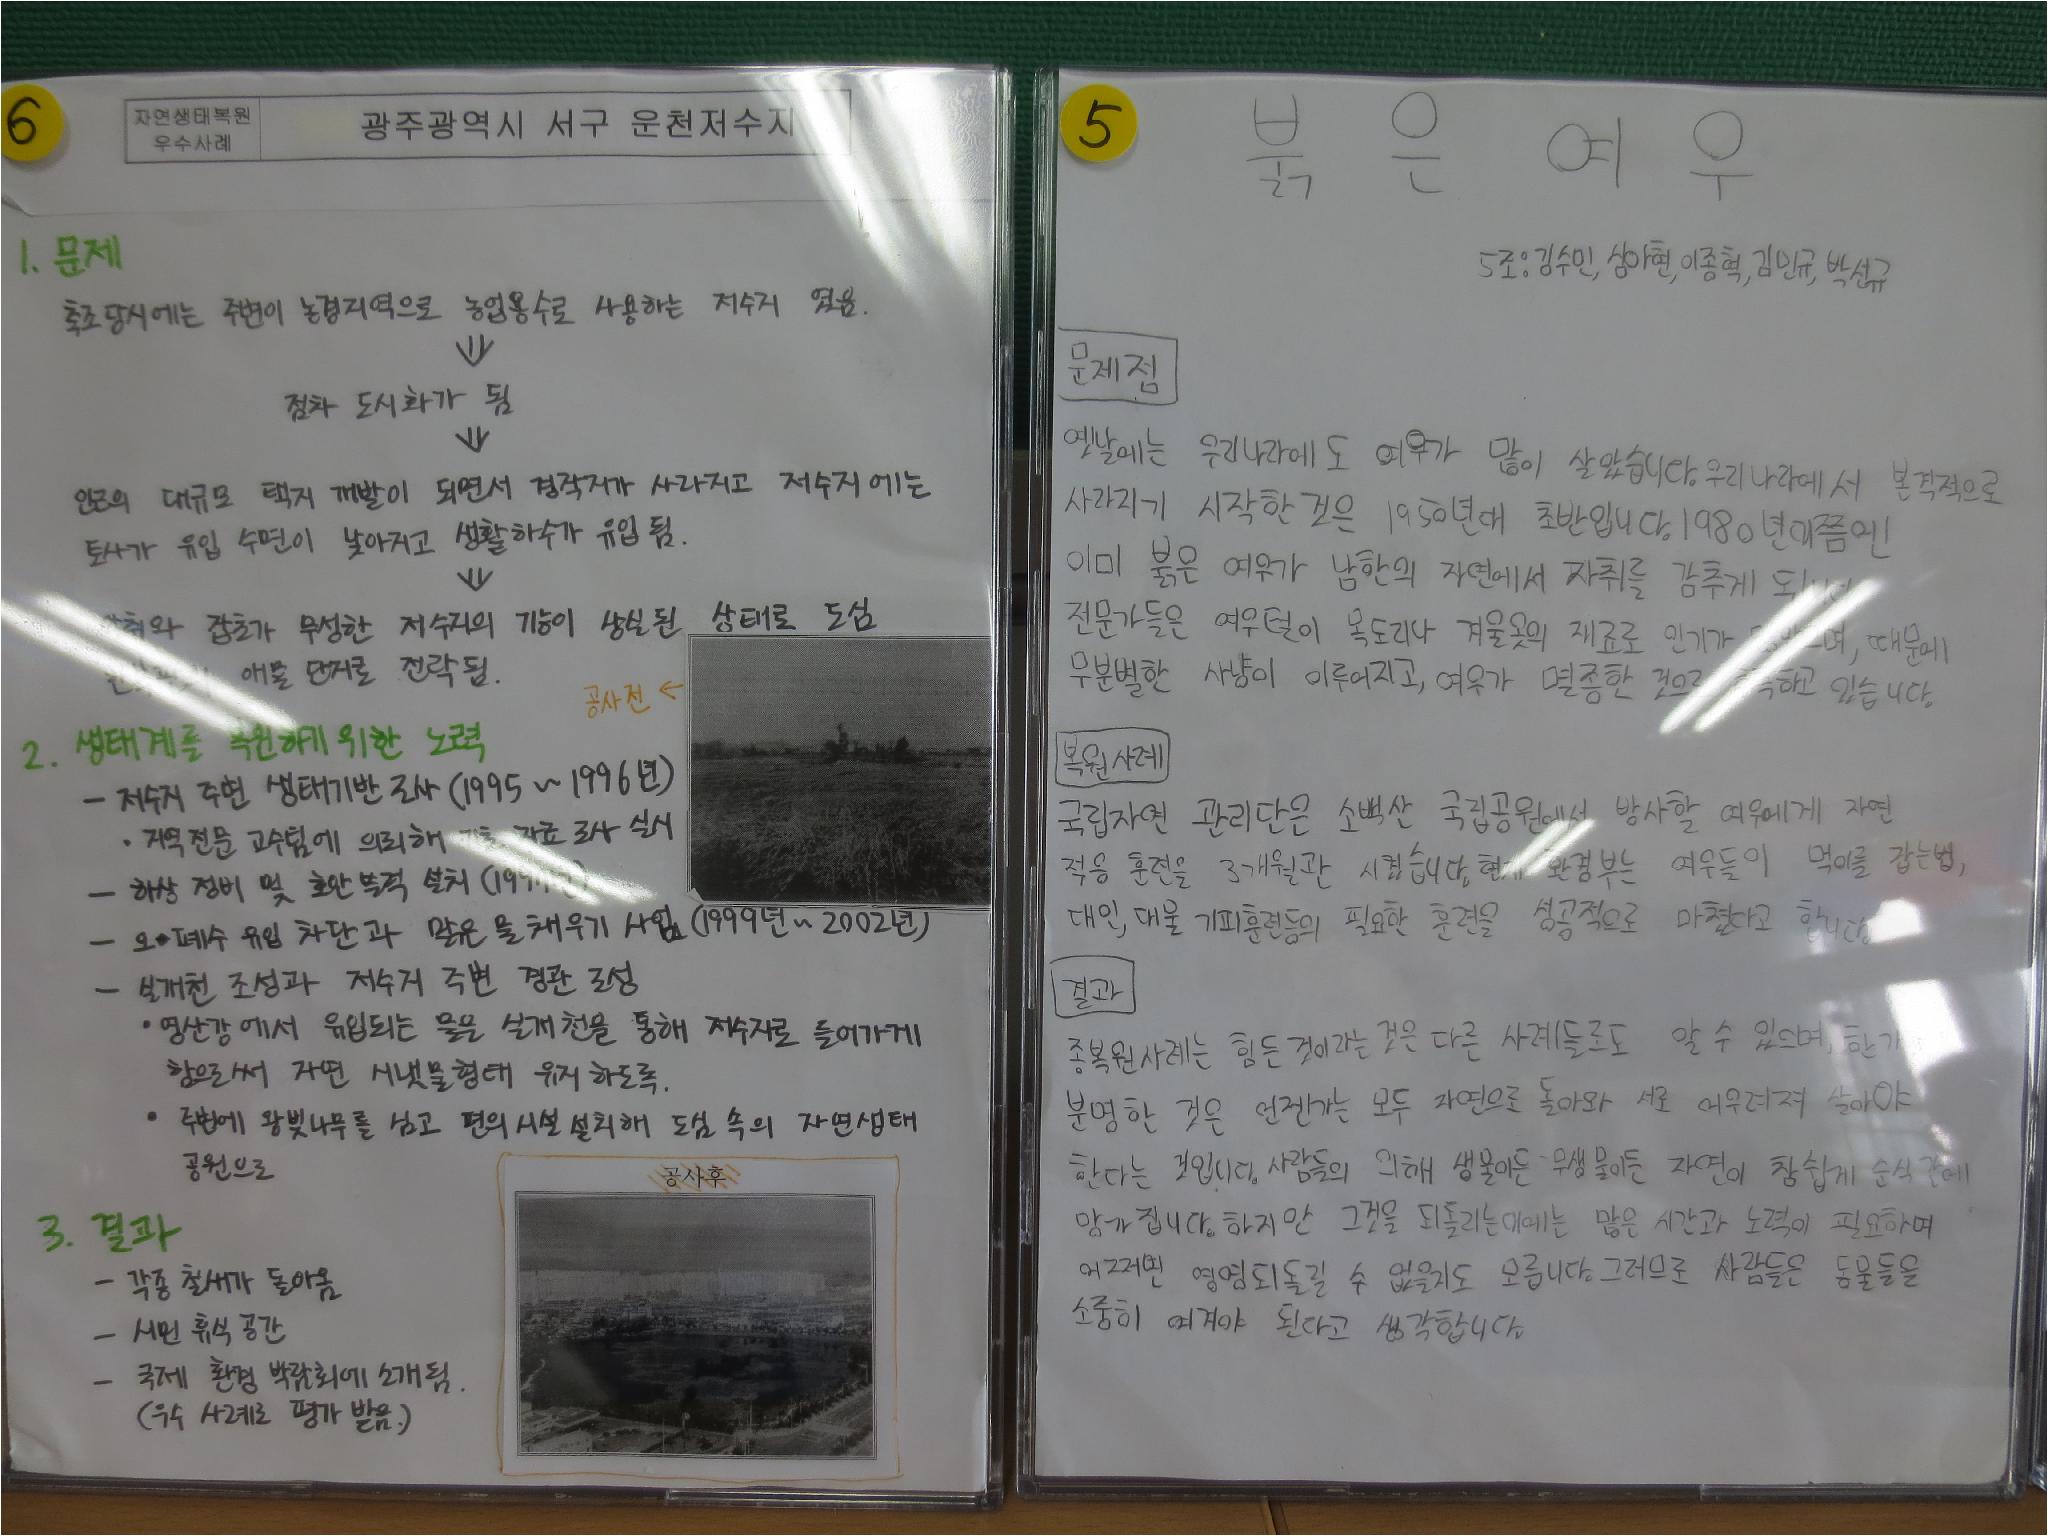 6
자연생태복원
우수사례
광주광역시 서구 운천저수지
1. 문제
축조당시에는 주변이 농경지역으로 농업용수로 사용하는 저수지 였음.
점차 도시화가 됨
인근의 대규모 택지 개발이 되면서 경작지가 사라지고 저수지에는
토사가 유입 수면이 낮아지고 생활하수가 유입 됨.
잡초가 무성한 저수지의 기능이 상실된 상태로 도심
애물 단지로 전락됨.
공사전
2. 생태계를 복원하기 위한 노력
- 저수지 주변 생태기반 조사 (1995 ~ 1996년)
• 지역전문 교수팀에 의뢰해 조사 실시
- 해상 정비 및 호안 뚝적 설치
- 오•폐수 유입 차단과 맑은 물 채우기 사업 (1999년 ~ 2002년)
- 실개천 조성과 저수지 주변 경관 조성
• 영산강에서 유입되는 물은 실개천을 통해 저수지로 들어가게
함으로써 자연 시냇물형태 유지하도록.
• 주변에 왕벚나무를 심고 편의시설 설치해 도심 속의 자연생태
공원으로
공사후
3. 결과
- 각종 철새가 돌아옴
- 시민 휴식 공간
- 국제 환경 박람회에 소개됨.
(우수 사례로 평가 받음.)
5
붉은 여우
5조: 김수민, 심아현, 이종혁, 김민규, 박선규
문제점
옛날에는 우리나라에도 여우가 많이 살았습니다. 우리나라에서 본격적으로
사라지기 시작한 것은 1950년대 초반입니다. 1980년대쯤엔
이미 붉은 여우가 남한의 자연에서 자취를 감추게
전문가들은 여우털이 목도리나 겨울옷의 재료로 인기가 때문에
무분별한 사냥이 이루어지고, 여우가 멸종한 것으로 있습니다.
복원사례
국립자연 관리단은 소백산 국립공원에서 방사할 여우에게 자연
적응 훈련을 3개월관 시켰습니다. 현재 환경부는 여우들이 먹이를 잡는법,
대인, 대물 기피훈련등의 필요한 훈련을 성공적으로 마쳤다고 합니다.
결과
종복원사례는 힘든것이라는 것은 다른 사례들로도 알 수 있으며, 한가
분명한 것은 언젠가는 모두 자연으로 돌아와 서로 어우러져 살아야
한다는 것입니다. 사람들의 의해 생물이든 무생물이든 자연이 참쉽게 순식간에
망가집니다. 하지만 그것을 되돌리는데에는 많은 시간과 노력이 필요하며
어쩌면 영영되돌릴 수 없을지도 모릅니다. 그러므로 사람들은 동물들을
소중히 여겨야 된다고 생각합니다.